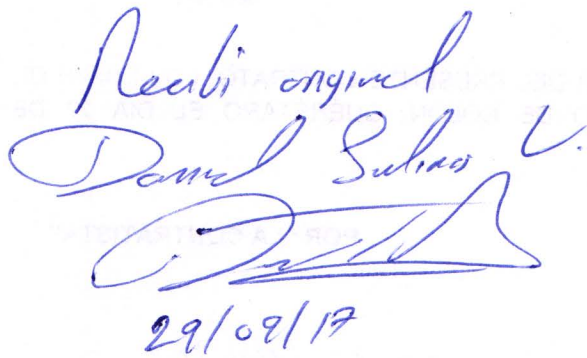 Recibi original
Daniel Salinas V.
29/09/17